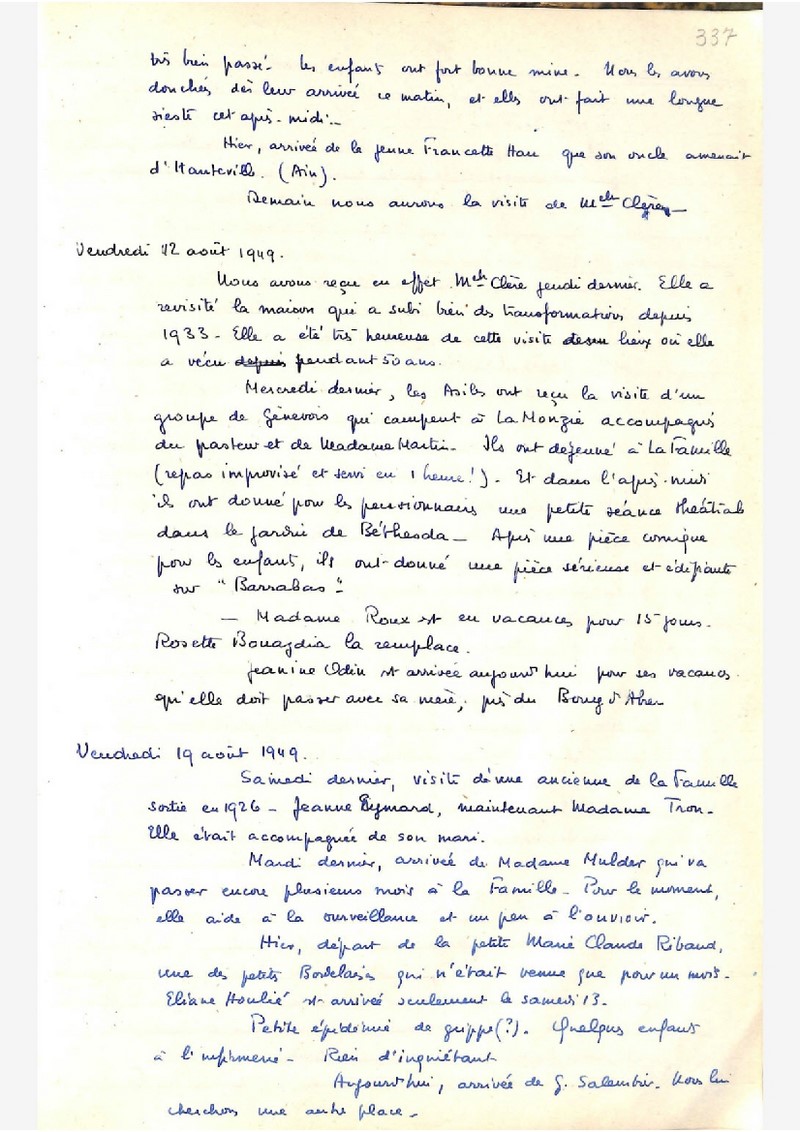 337
très bien passé. Les enfants ont fort bonne mine. Nous les avons
douchés dès leur arrivée ce matin, et elles ont fait une longue
sieste cet après-midi.
Hier, arrivée de la jeune Francette Hau que son oncle amenait
d'Hauteville. (Ain).
Demain nous aurons la visite de Melle Clère
Vendredi 12 août 1949.
Nous avons reçu en effet Melle Clère jeudi dernier. Elle a
revisité la maison qui a subi bien des transformations depuis
1933 - Elle a été très heureuse de cette visite lieux où elle
a vécu depuis pendant 50 ans.
Mercredi dernier, les Asiles ont reçu la visite d'un
groupe de Génevois qui campent à La Monzie accompagnés
du pasteur et de Madame Martin. Ils ont déjeuné à La Famille
(repas improvisé et servi en 1 heure!). Et dans l'après-midi
ils ont donné pour les pensionnaires une petite séance théâtrale
dans le jardin de Béthesda - Après une pièce comique
pour les enfants, ils ont donné une pièce sérieuse et édifiante
sur "Barrabas"
- Madame Roux est en vacances pour 15 jours.
Rosette Bouagdia la remplace.
Jeanine Odin est arrivée aujourd'hui pour ses vacances
qu'elle doit passer avec sa mère, près du Bourg d'
Vendredi 19 août 1949.
Samedi dernier, visite d'une ancienne de la Famille
sortie en 1926 - Jeanne Eymard, maintenant Madame Tron.
Elle était accompagnée de son mari.
Mardi dernier, arrivée de Madame Mulder qui va
passer encore plusieurs mois à la Famille - Pour le moment,
elle aide à la surveillance et un peu à l'ouvroir.
Hier, départ de la petite Marie Claude Ribaud,
une des petites Bordelaises qui n'était venue que pour un mois.
Eliane Houlié est arrivée seulement le samedi 13.
Petite épidémie de grippe (?). Quelques enfants
à l'infirmerie - Rien d'inquiétant
Aujourd'hui, arrivée de G. Salembier. Nous lui
cherchons une autre place -